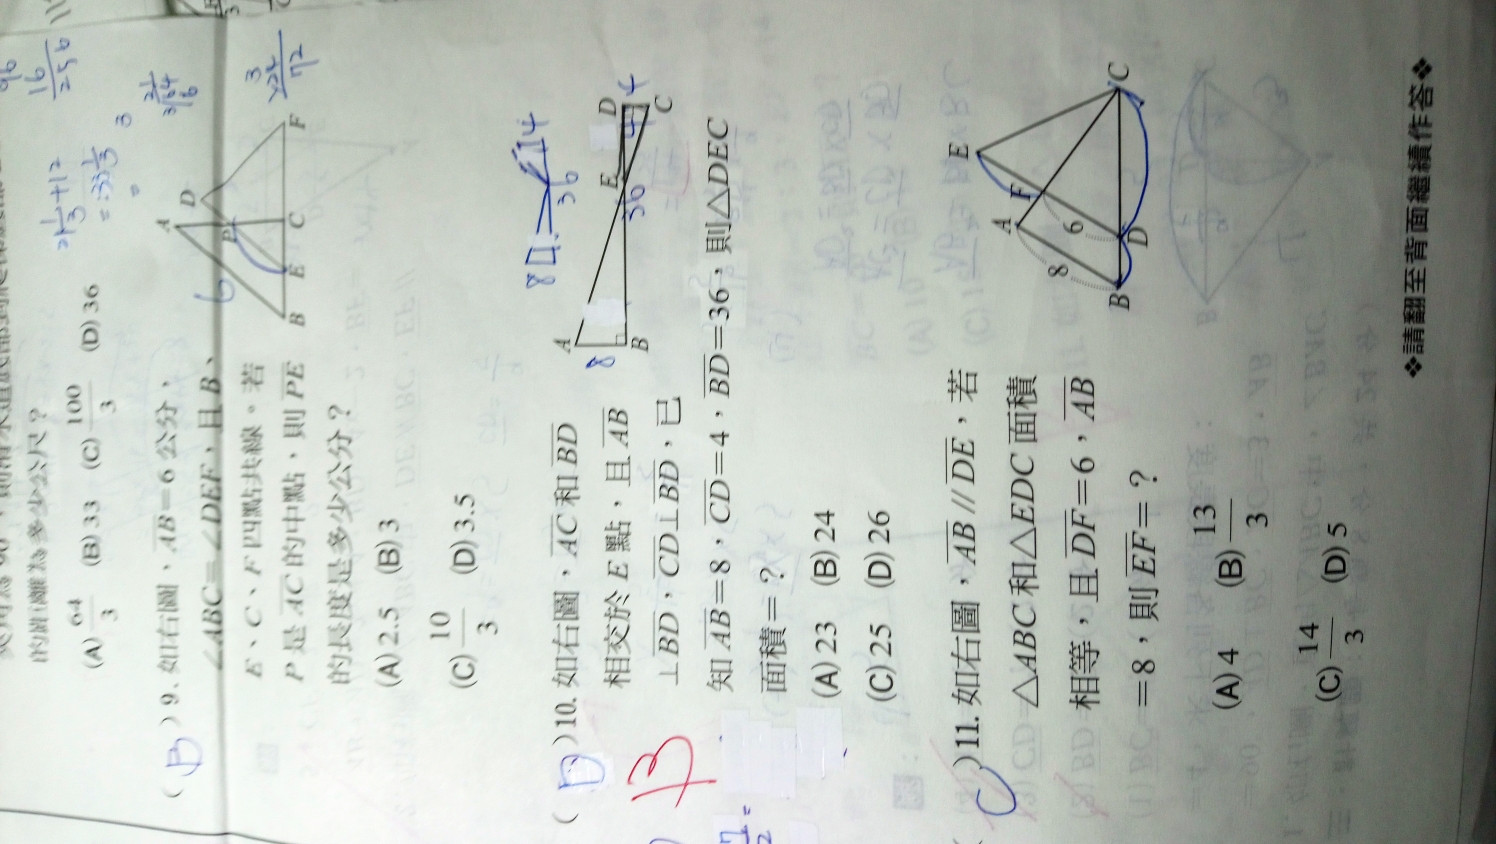 的距離為多少公尺？
(A) 64/3 (B) 33 (C) 100/3 (D) 36
( B ) 9. 如右圖，AB=6 公分，
∠ABC=∠DEF，且 B、
E、C、F 四點共線。若
P 是 AC 的中點，則 PE
的長度是多少公分？
(A) 2.5 (B) 3
(C) 10/3 (D) 3.5
A
D
P
B
E
C
F
6
( D ) 10. 如右圖，AC 和 BD
相交於 E 點，且 AB
⊥BD，CD⊥BD，已
知 AB=8，CD=4，BD=36，則△DEC
面積=？
(A) 23 (B) 24
(C) 25 (D) 26
B
8
36
A
B
E
D
C
8
36
4
C
) 11. 如右圖，AB // DE，若
△ABC 和△EDC 面積
相等，且 DF=6，AB
=8，則 EF=？
(A) 4 (B) 13/3
(C) 14/3 (D) 5
A
E
F
8
6
B
D
C
❖請翻至背面繼續作答❖